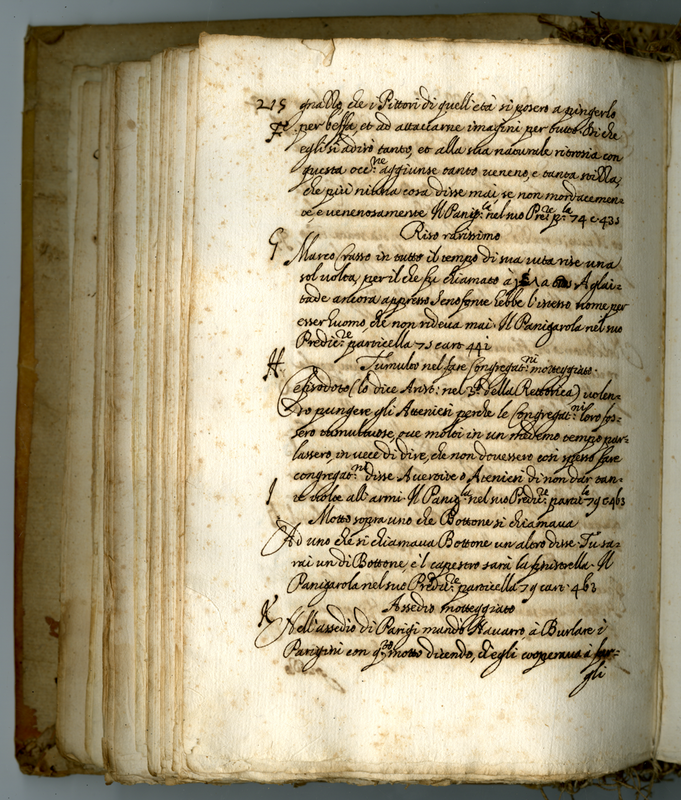 215 gnallo, che i Pittori di quell'età si posero a pingerlo
F. per beffa, et ad attaccarne imagini per tutto. Di che
egli si adirò tanto, et alla sua naturale ritrosia con
questa occ:ne aggiunse tanto veneno, e tanta
che più niuna cosa disse mai, se non mordacemen=
te e venenosamente. Il Panig:la nel suo Pre:re p:la 74 c 433
Riso rarissimo
G Marco Crasso in tutto il tempo di sua vita rise una
sol volta, per il che fu chiamato à
tade ancora appresso Senofonte hebbe l'istesso nome per
esser huomo, che non rideva mai. Il Panigarola nel suo
Predic:re particella 75 cart 441
H. Tumulto nel fare Congregat:ni motteggiato.
Cefisodoto (lo dice Arist: nel 3º della Rettorica) volen=
do pungere gli Atteniesi perche le Congregat:ni loro fos=
sero tumultuose, ove molti in un medemo tempo par=
lassero, in vece di dire, che non dovessero così spesso fare
congregat:ni disse Avertite o Ateniesi di non dar tan=
I te volte all'armi. Il Panig:la nel suo Predic:re partic:la 79 c 463
Motto sopra uno che Bottone si chiamava
Ad uno che si chiamava Bottone un altro disse. Tu sa=
rai un dì Bottone, e'l capestro sarà la finestrella. Il
Panigarola nel suo Predic:re particella 79 cart. 463
Assedio motteggiato
K Nell'assedio di Parigi mandò Navarro, à Burlare i
Parigini con q:to motto dicendo, ch'egli cooperava à far=
gli